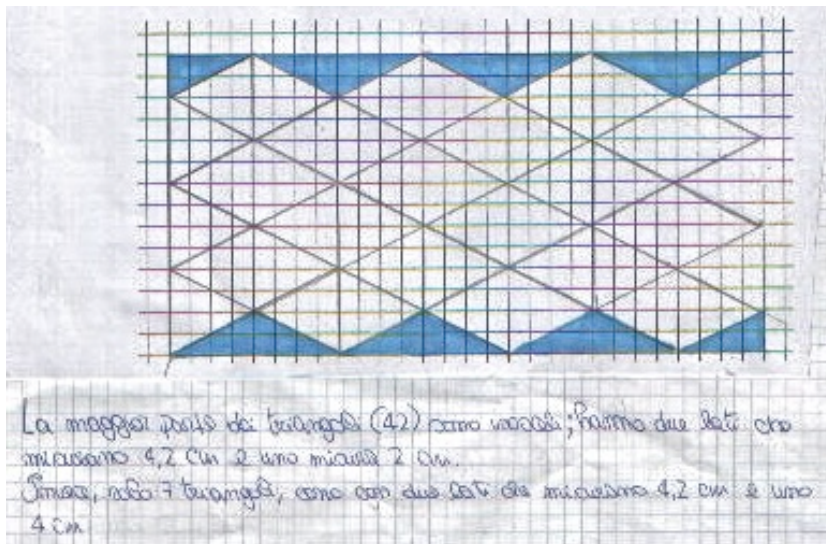 La maggior parte dei triangoli (42) sono uguali; hanno due lati che
misurano 4,2 cm e uno misura 2 cm.
Invece, solo 7 triangoli, sono con due lati che misurano 4,2 cm e uno
4 cm